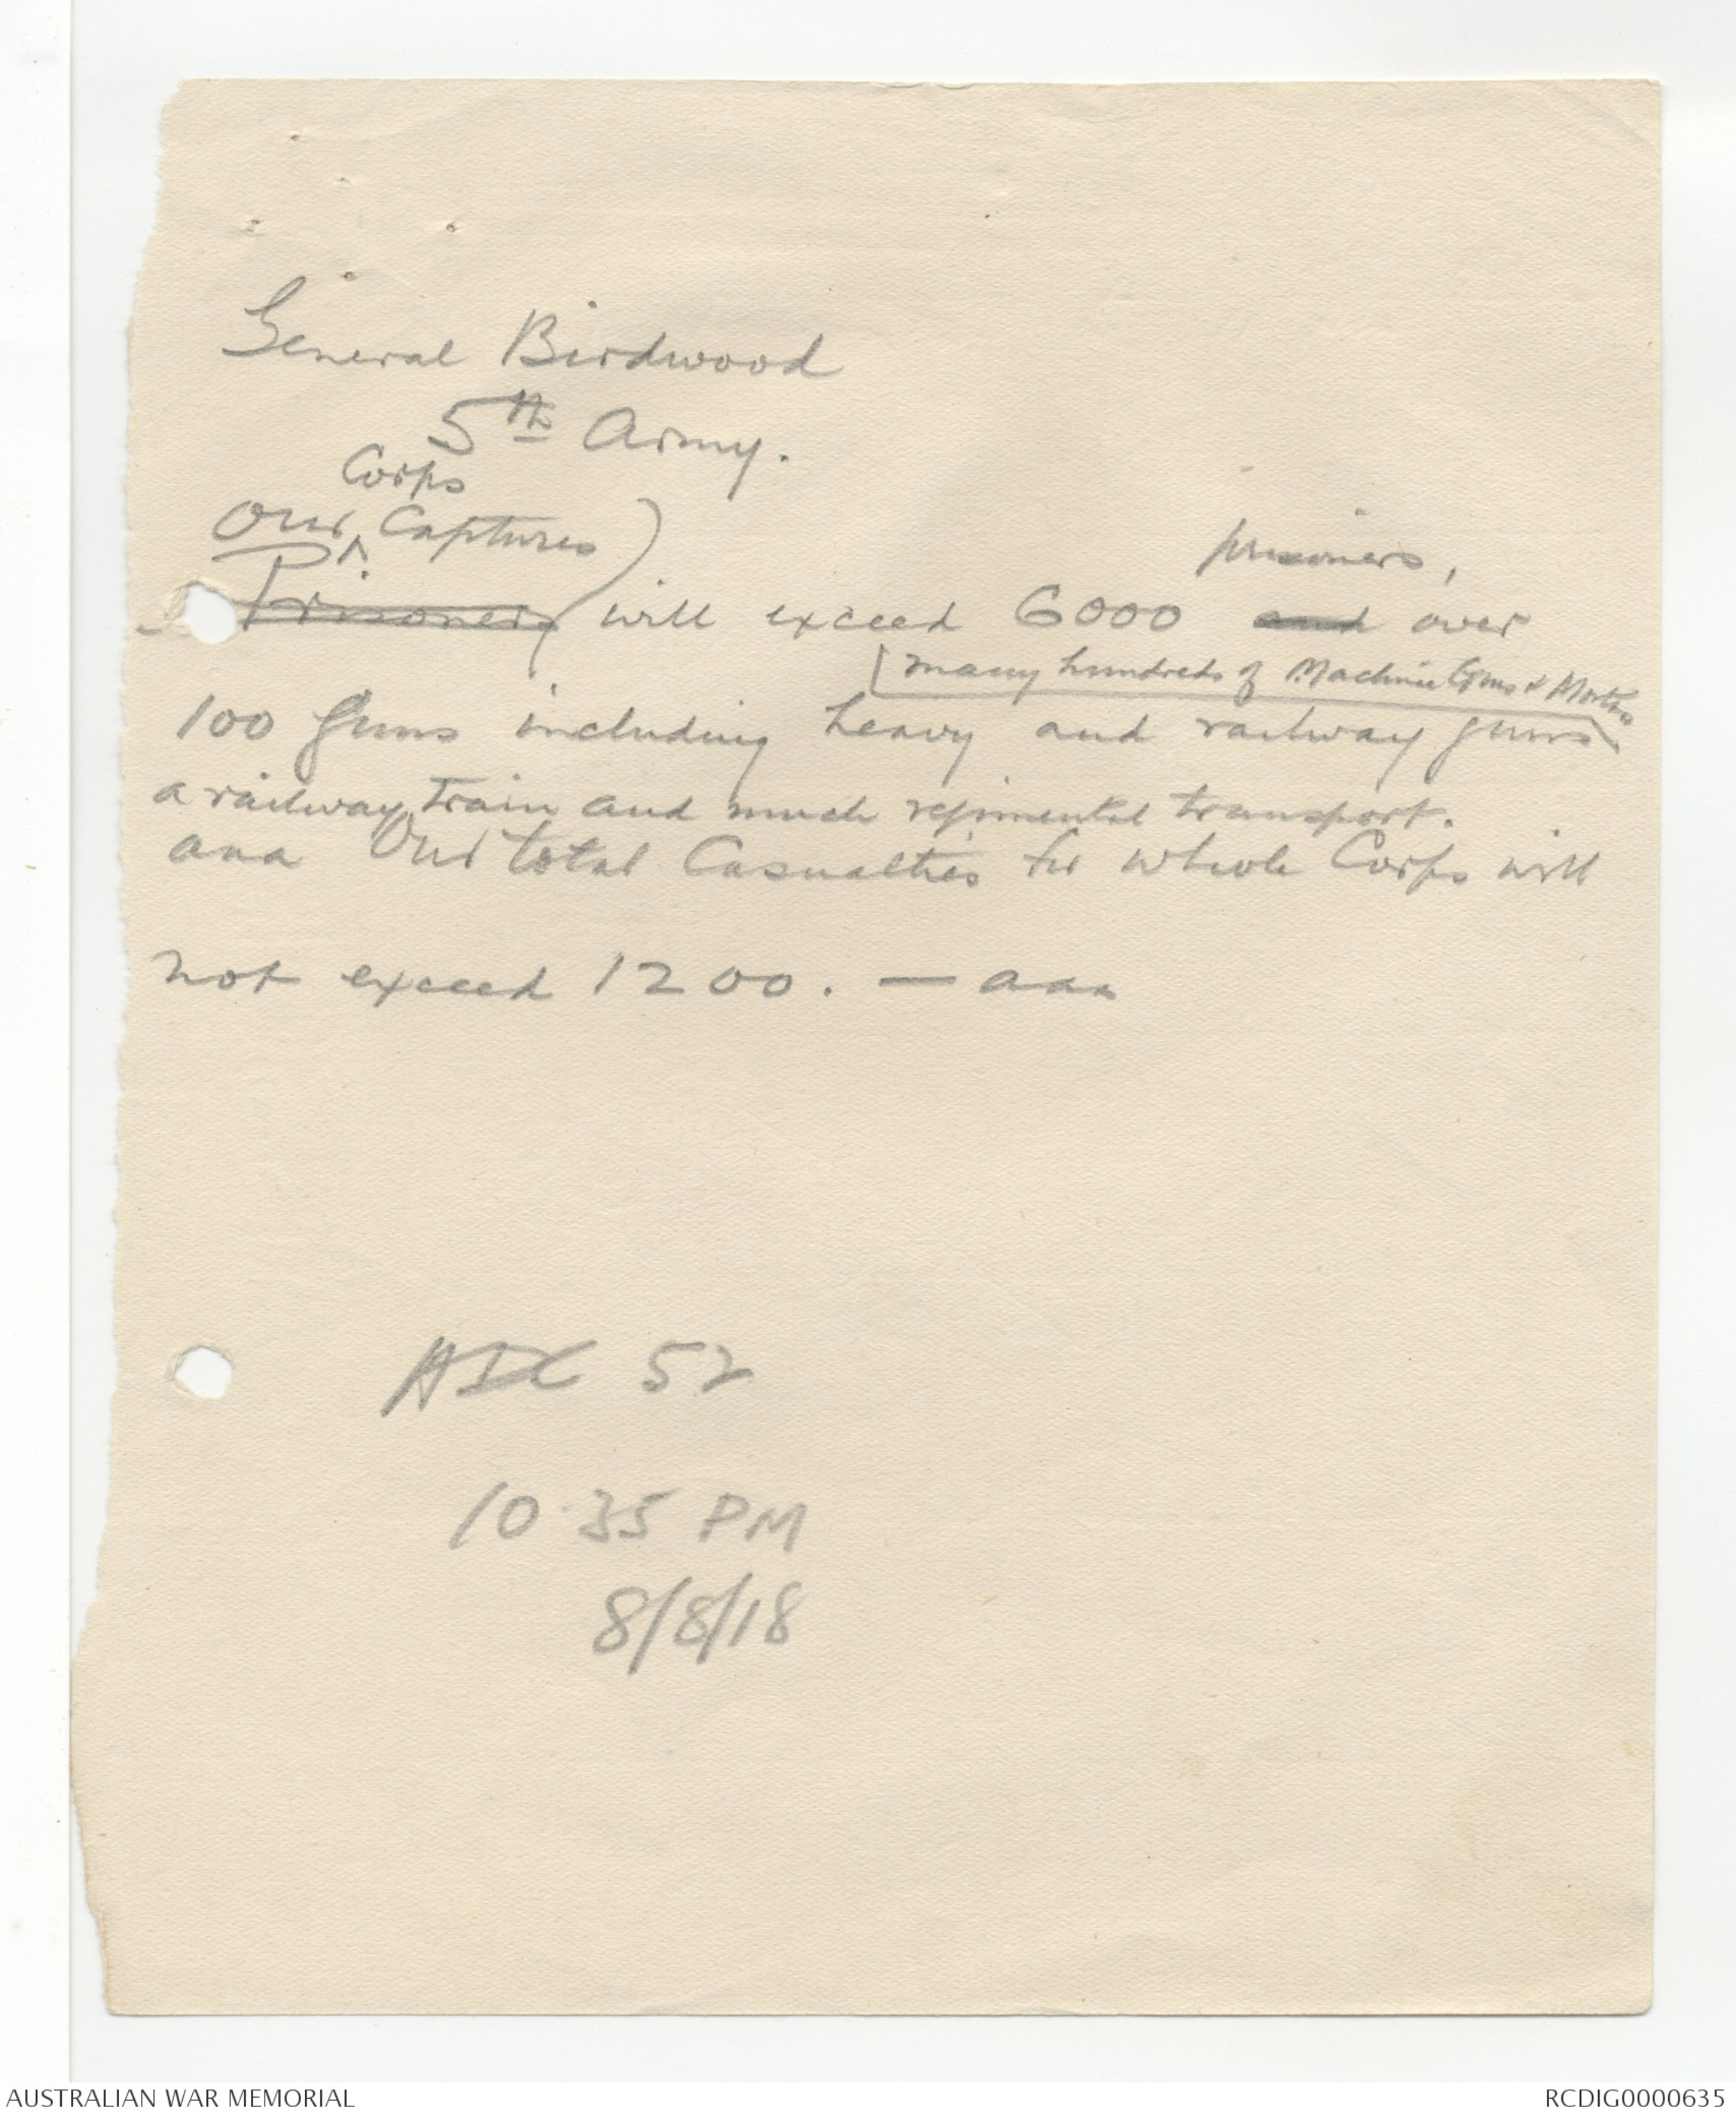 General Birdwood
5th Army.
Corps
Our ^ Captures)
Prisoners will exceed 6000 and over
prisoners,
many hundreds of Machine Guns & Mortars
100 guns including heavy and railway guns
a railway train and much regimental transport.
aaa Our total Casualties for whole Corps will
not exceed 1200. — aaa
ADC 52
10.35 PM
8/8/18
AUSTRALIAN WAR MEMORIAL
RCDIG0000635